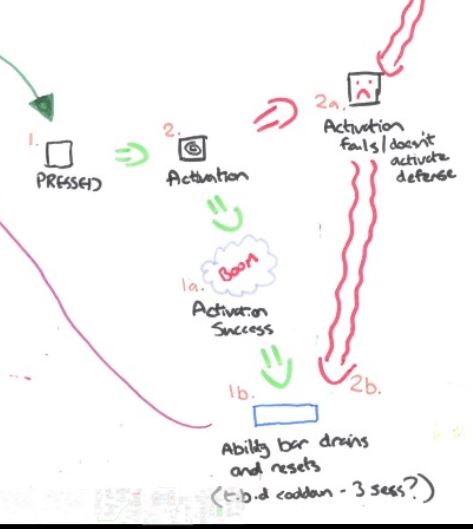 1.
PRESSED
2.
Activation
2a.
Activation
fails/doesn't
activate
defense
BOOM
1a.
Activation
Success
1b.
2b.
Ability bar drains
and resets
(t.b.d cooldown - 3 secs?)